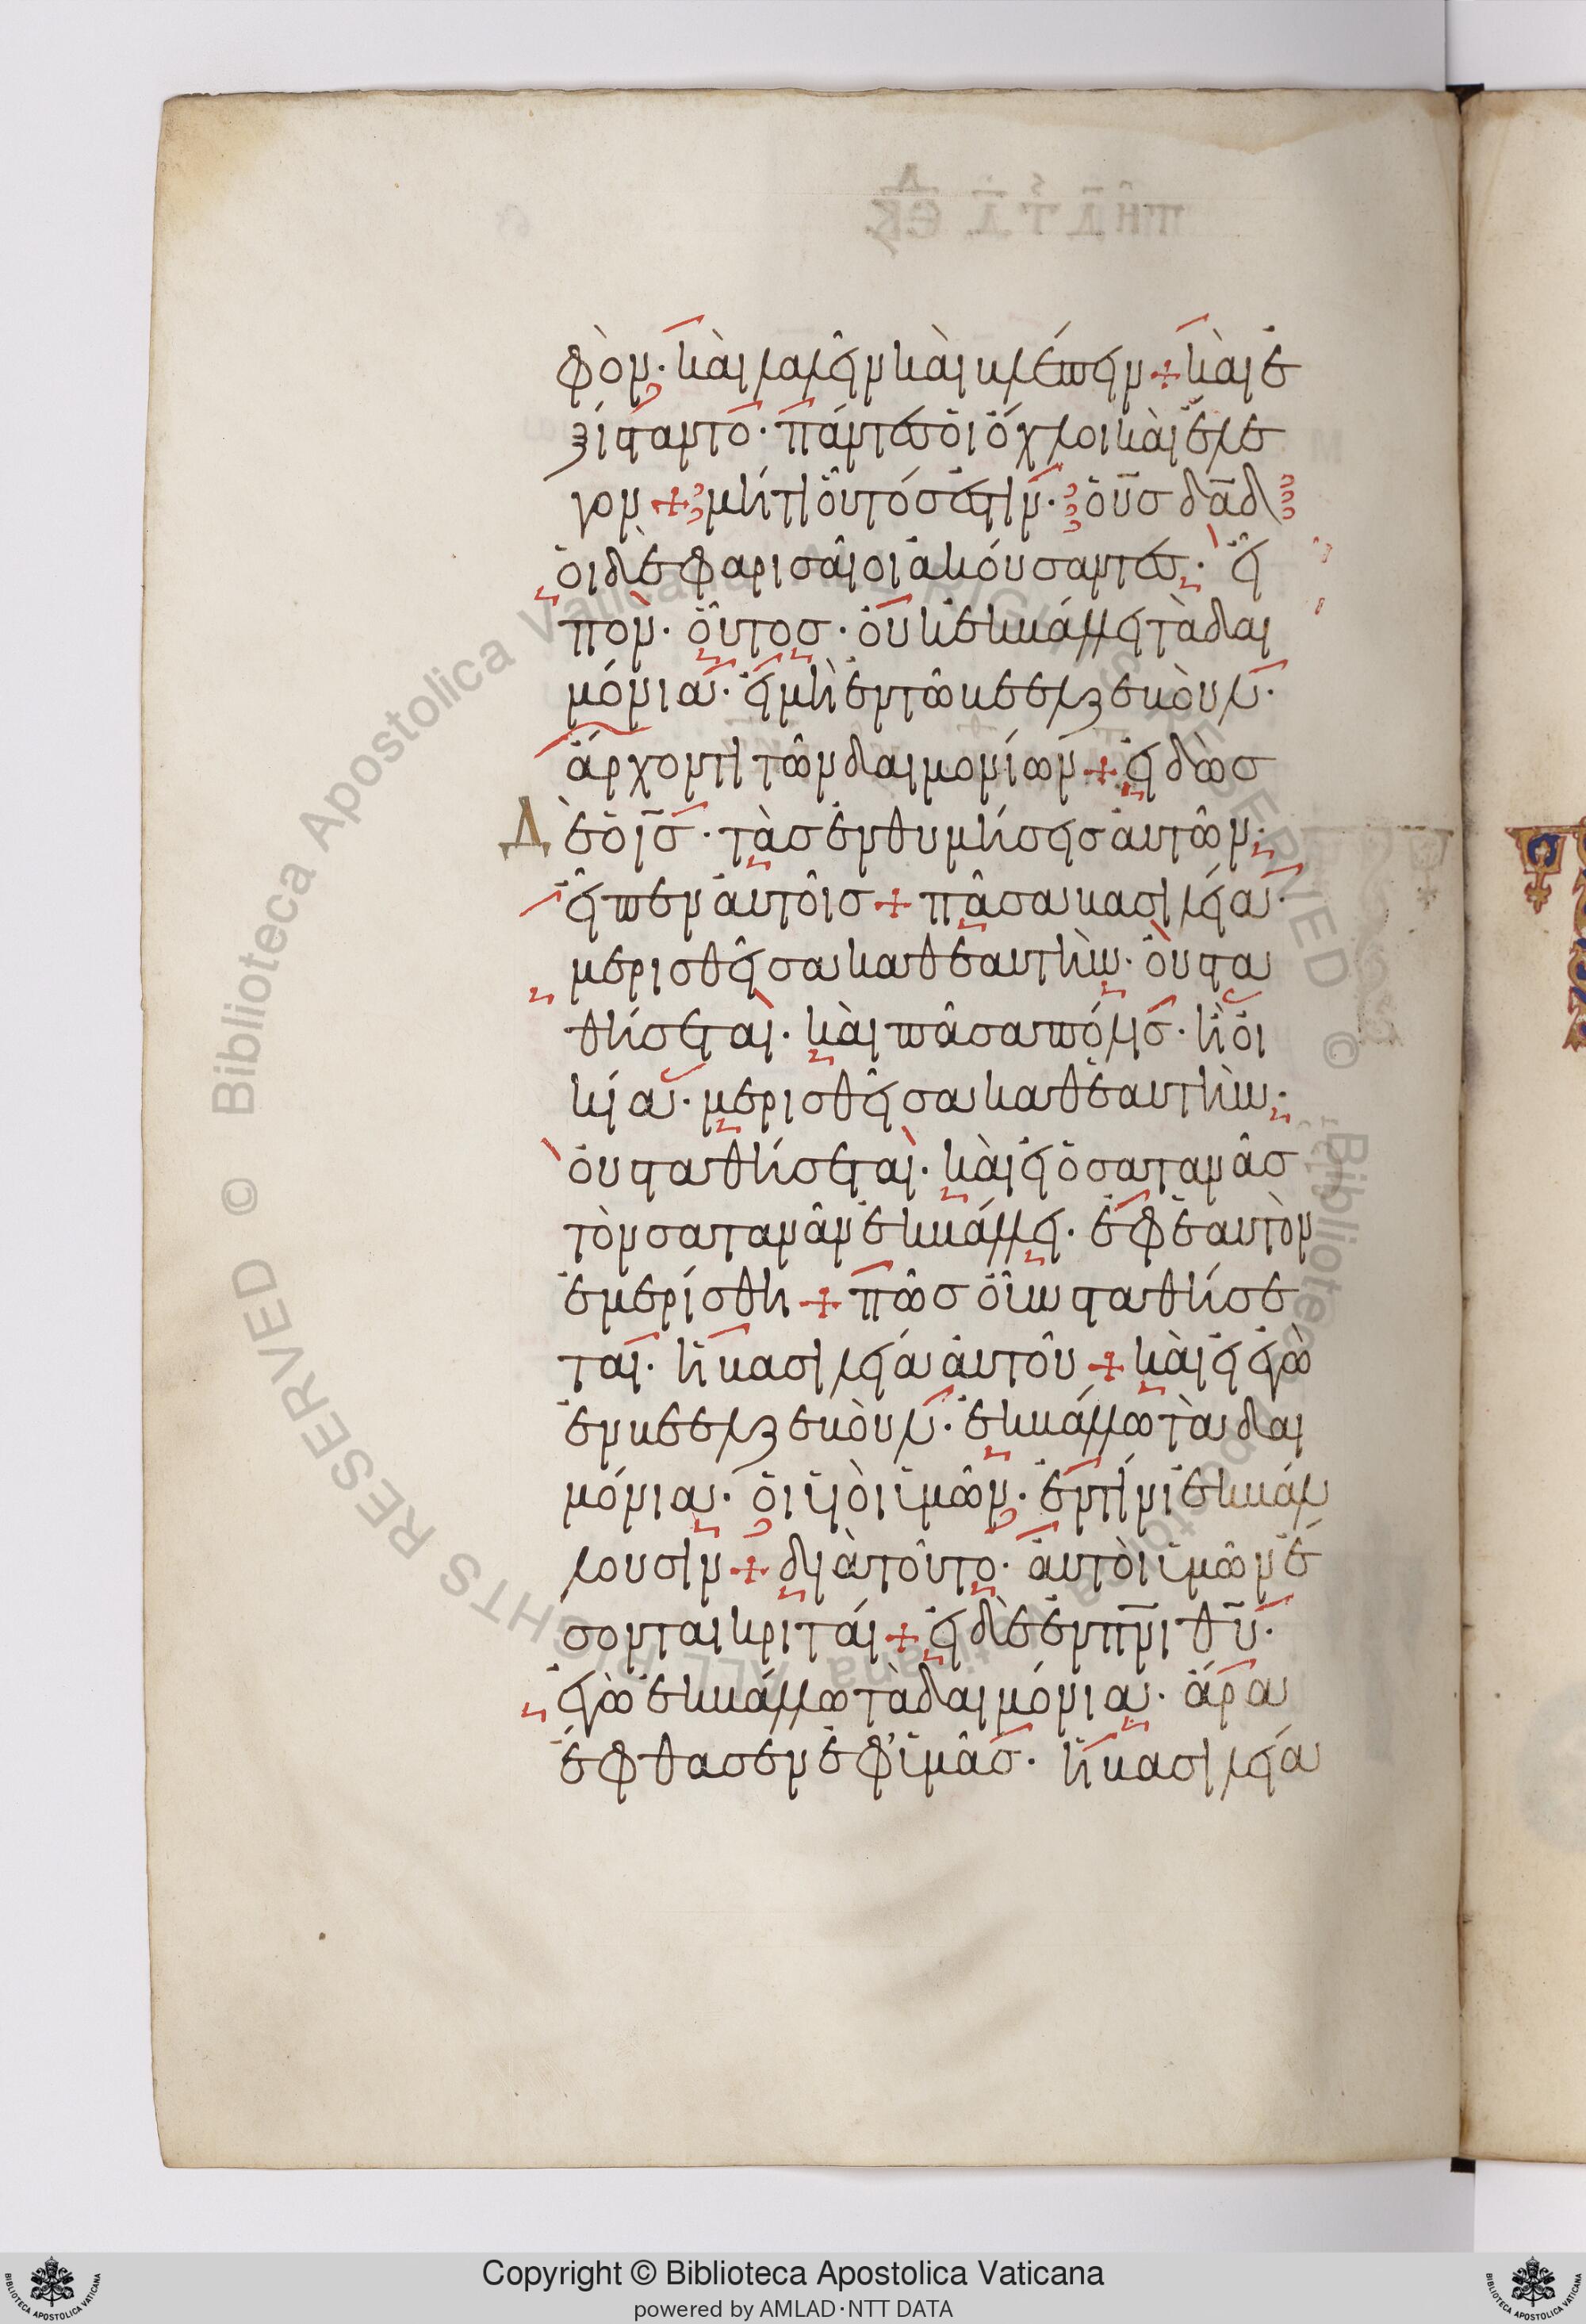 φὸν· καὶ λαλεῖν καὶ βλέπειν + καὶ ἐ
ξίσταντο· πάντες ὁι ὄχλοι καὶ ἔλε
γον + μήτι οὗτός ἐστιν· ὁ ῡς δᾱδ
ὁι δὲ φαρισαῖοι ἀκούσαντες· εἶ
πον· οὗτος· οὐκ ἐκβάλλει τὰ δαι
μόνια· εἰ μὴ ἐν τῶ βεελζεβοὺλ·
ἄρχοντι τῶν δαιμονίων + εἰδὼς
Δ ὲ ὁ ῑς· τὰς ἐνθυμήσεις ἀυτῶν·
εἶπεν ἀυτοῖς + πᾶσα βασιλεία·
μερισθεῖσα καθ ἑαυτὴν· ὀυ στα
θήσεται· καὶ πᾶσα πόλις· ἢ ὀι
κία· μερισθεῖσα καθ ἑαυτὴν·
ὀυ σταθήσεται· καὶ εἰ ὁ σατανᾶς
τὸν σατανᾶν ἐκβάλλει· ἐφ ἑαυτὸν
ἐμερίσθη + πῶς οὖν σταθήσε
ται· ἡ βασιλεία ἀυτοῦ + καὶ εἰ ἐγὼ
ἐν βεελζεβοὺλ· ἐκβάλλω τὰ δαι
μόνια· ὁι ὑιὸι ὑμῶν· ἐν τίνι ἐκβάλ
λουσιν + διὰ τοῦτο· ἀυτὸι ὑμῶν ἔ
σονται κριτάι + εἰ δὲ ἐν πν̄ι θῡ·
ἐγὼ ἐκβάλλω τὰ δαιμόνια· ἄρα
ἔφθασεν ἐφ ὑμᾶς· ἡ βασιλεία
Copyright © Biblioteca Apostolica Vaticana
powered by AMLAD·NTT DATA